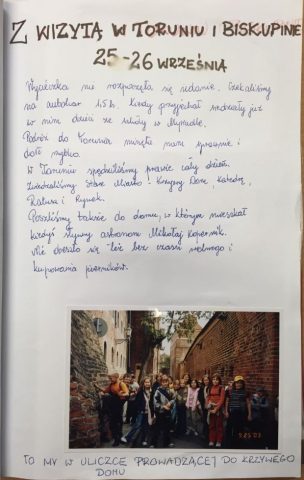 Z WIZYTĄ W TORUNIU I BISKUPINIE
25-26 WRZEŚNIA
Wycieczka nie rozpoczęła się udanie. Czekaliśmy
na autokar 1,5 h. Kiedy przyjechał siedziały już
w nim dzieci ze szkoły w
Podróż do Torunia minęła nam sprawnie i
dość szybko.
W Toruniu spędziliśmy prawie cały dzień.
Zwiedzaliśmy Stare Miasto: Krzywy Dom, Katedrę,
Ratusz i Rynek.
Poszliśmy także do domu, w którym mieszkał
kiedyś słynny astronom Mikołaj Kopernik.
Nie obeszło się też bez czasu wolnego i
kupowania pierników.
TO MY W ULICZCE PROWADZĄCEJ DO KRZYWEGO
DOMU